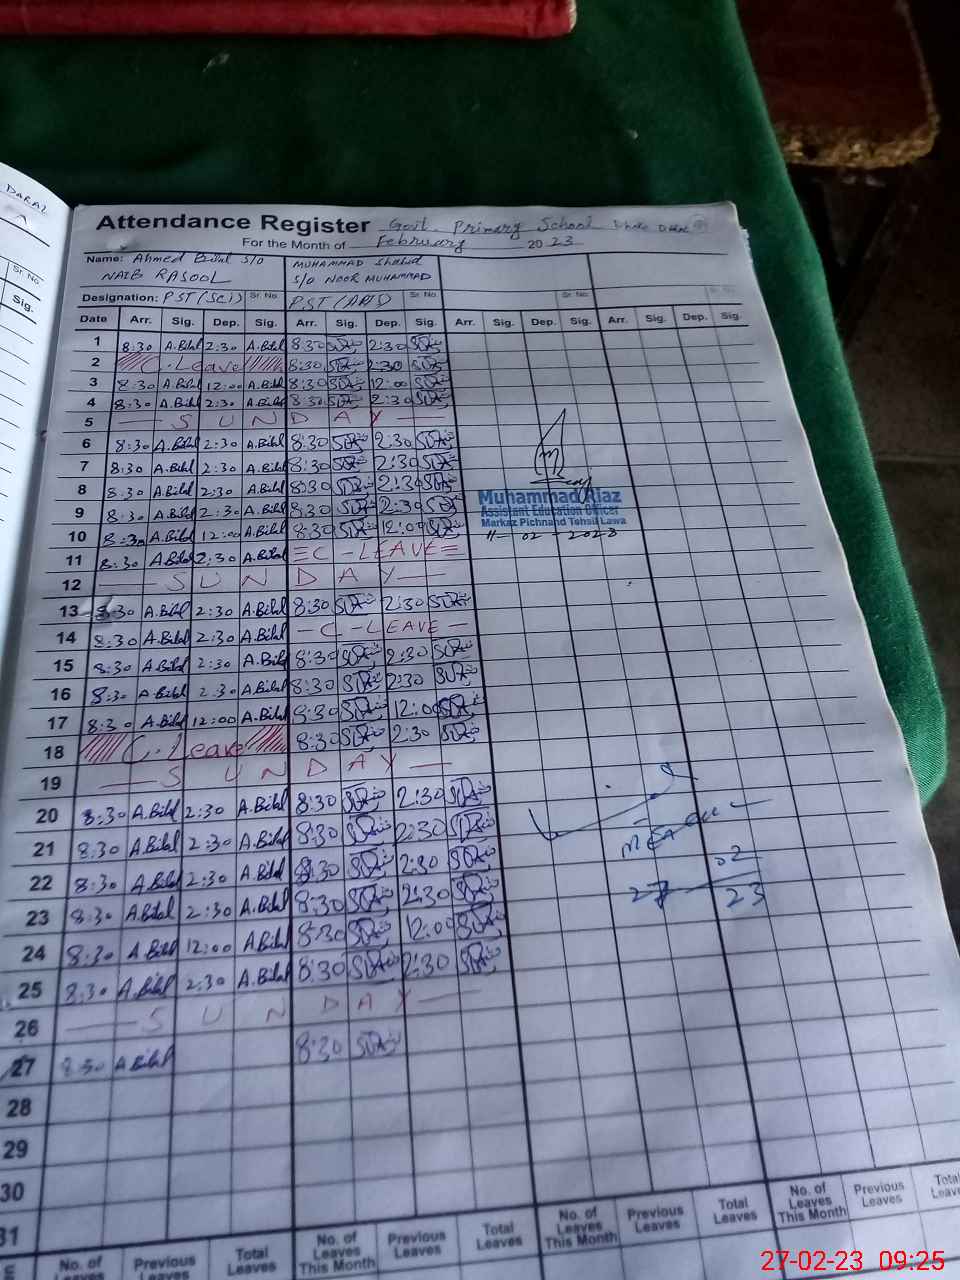 DARAL
Sr. No.
Sig.
Attendance Register Govt. Primary School
For the Month of February 2023
Name: Ahmed Bilal S/O MUHAMMAD Shahid
S/O NOOR MUHAMMAD
RASOOL
Designation: PST (Sci) Sr. No. PST (Arts) Sr. No. Sr. No. Sr. No.
Date Arr. Sig. Dep. Sig. Arr. Sig. Dep. Sig. Arr. Sig. Dep. Sig. Arr. Sig. Dep. Sig.
1 8:30 A.Bilal 2:30 A.Bilal 8:30 2:30
2 C. Leave 8:30 2:30
3 8:30 A.Bilal 12:00 A.Bilal 8:30 12:00
4 8:30 A.Bilal 2:30 A.Bilal 8:30 2:30
5 — S U N D A Y —
6 8:30 A.Bilal 2:30 A.Bilal 8:30 2:30
7 8:30 A.Bilal 2:30 A.Bilal 8:30 2:30
8 8:30 A.Bilal 2:30 A.Bilal 8:30 2:30
9 8:30 A.Bilal 2:30 A.Bilal 8:30 2:30
10 8:30 A.Bilal 12:00 A.Bilal 8:30 12:00
11 8:30 A.Bilal 2:30 A.Bilal C-LEAVE
12 — S U N D A Y —
Muhammad Riaz
Assistant Education Officer
Markaz Pichnand Tehsil Lawa
11-02-2023
13 8:30 A.Bilal 2:30 A.Bilal 8:30 2:30
14 8:30 A.Bilal 2:30 A.Bilal - C - LEAVE -
15 8:30 A.Bilal 2:30 A.Bilal 8:30 2:30
16 8:30 A.Bilal 2:30 A.Bilal 8:30 2:30
17 8:30 A.Bilal 12:00 A.Bilal 8:30 12:00
18 C. Leave 8:30 2:30
19 — S U N D A Y —
20 8:30 A.Bilal 2:30 A.Bilal 8:30 2:30
21 8:30 A.Bilal 2:30 A.Bilal 8:30 2:30
22 8:30 A.Bilal 2:30 A.Bilal 8:30 2:30
23 8:30 A.Bilal 2:30 A.Bilal 8:30 2:30
24 8:30 A.Bilal 12:00 A.Bilal 8:30 12:00
25 8:30 A.Bilal 2:30 A.Bilal 8:30 2:30
26 — S U N D A Y —
27 8:30 A.Bilal 8:30
02
27 23
28
29
30
31
No. of Leaves Previous Leaves Total Leaves No. of Leaves This Month Previous Leaves Total Leaves No. of Leaves This Month Previous Leaves Total Leaves No. of Leaves This Month Previous Leaves Total
27-02-23 09:25